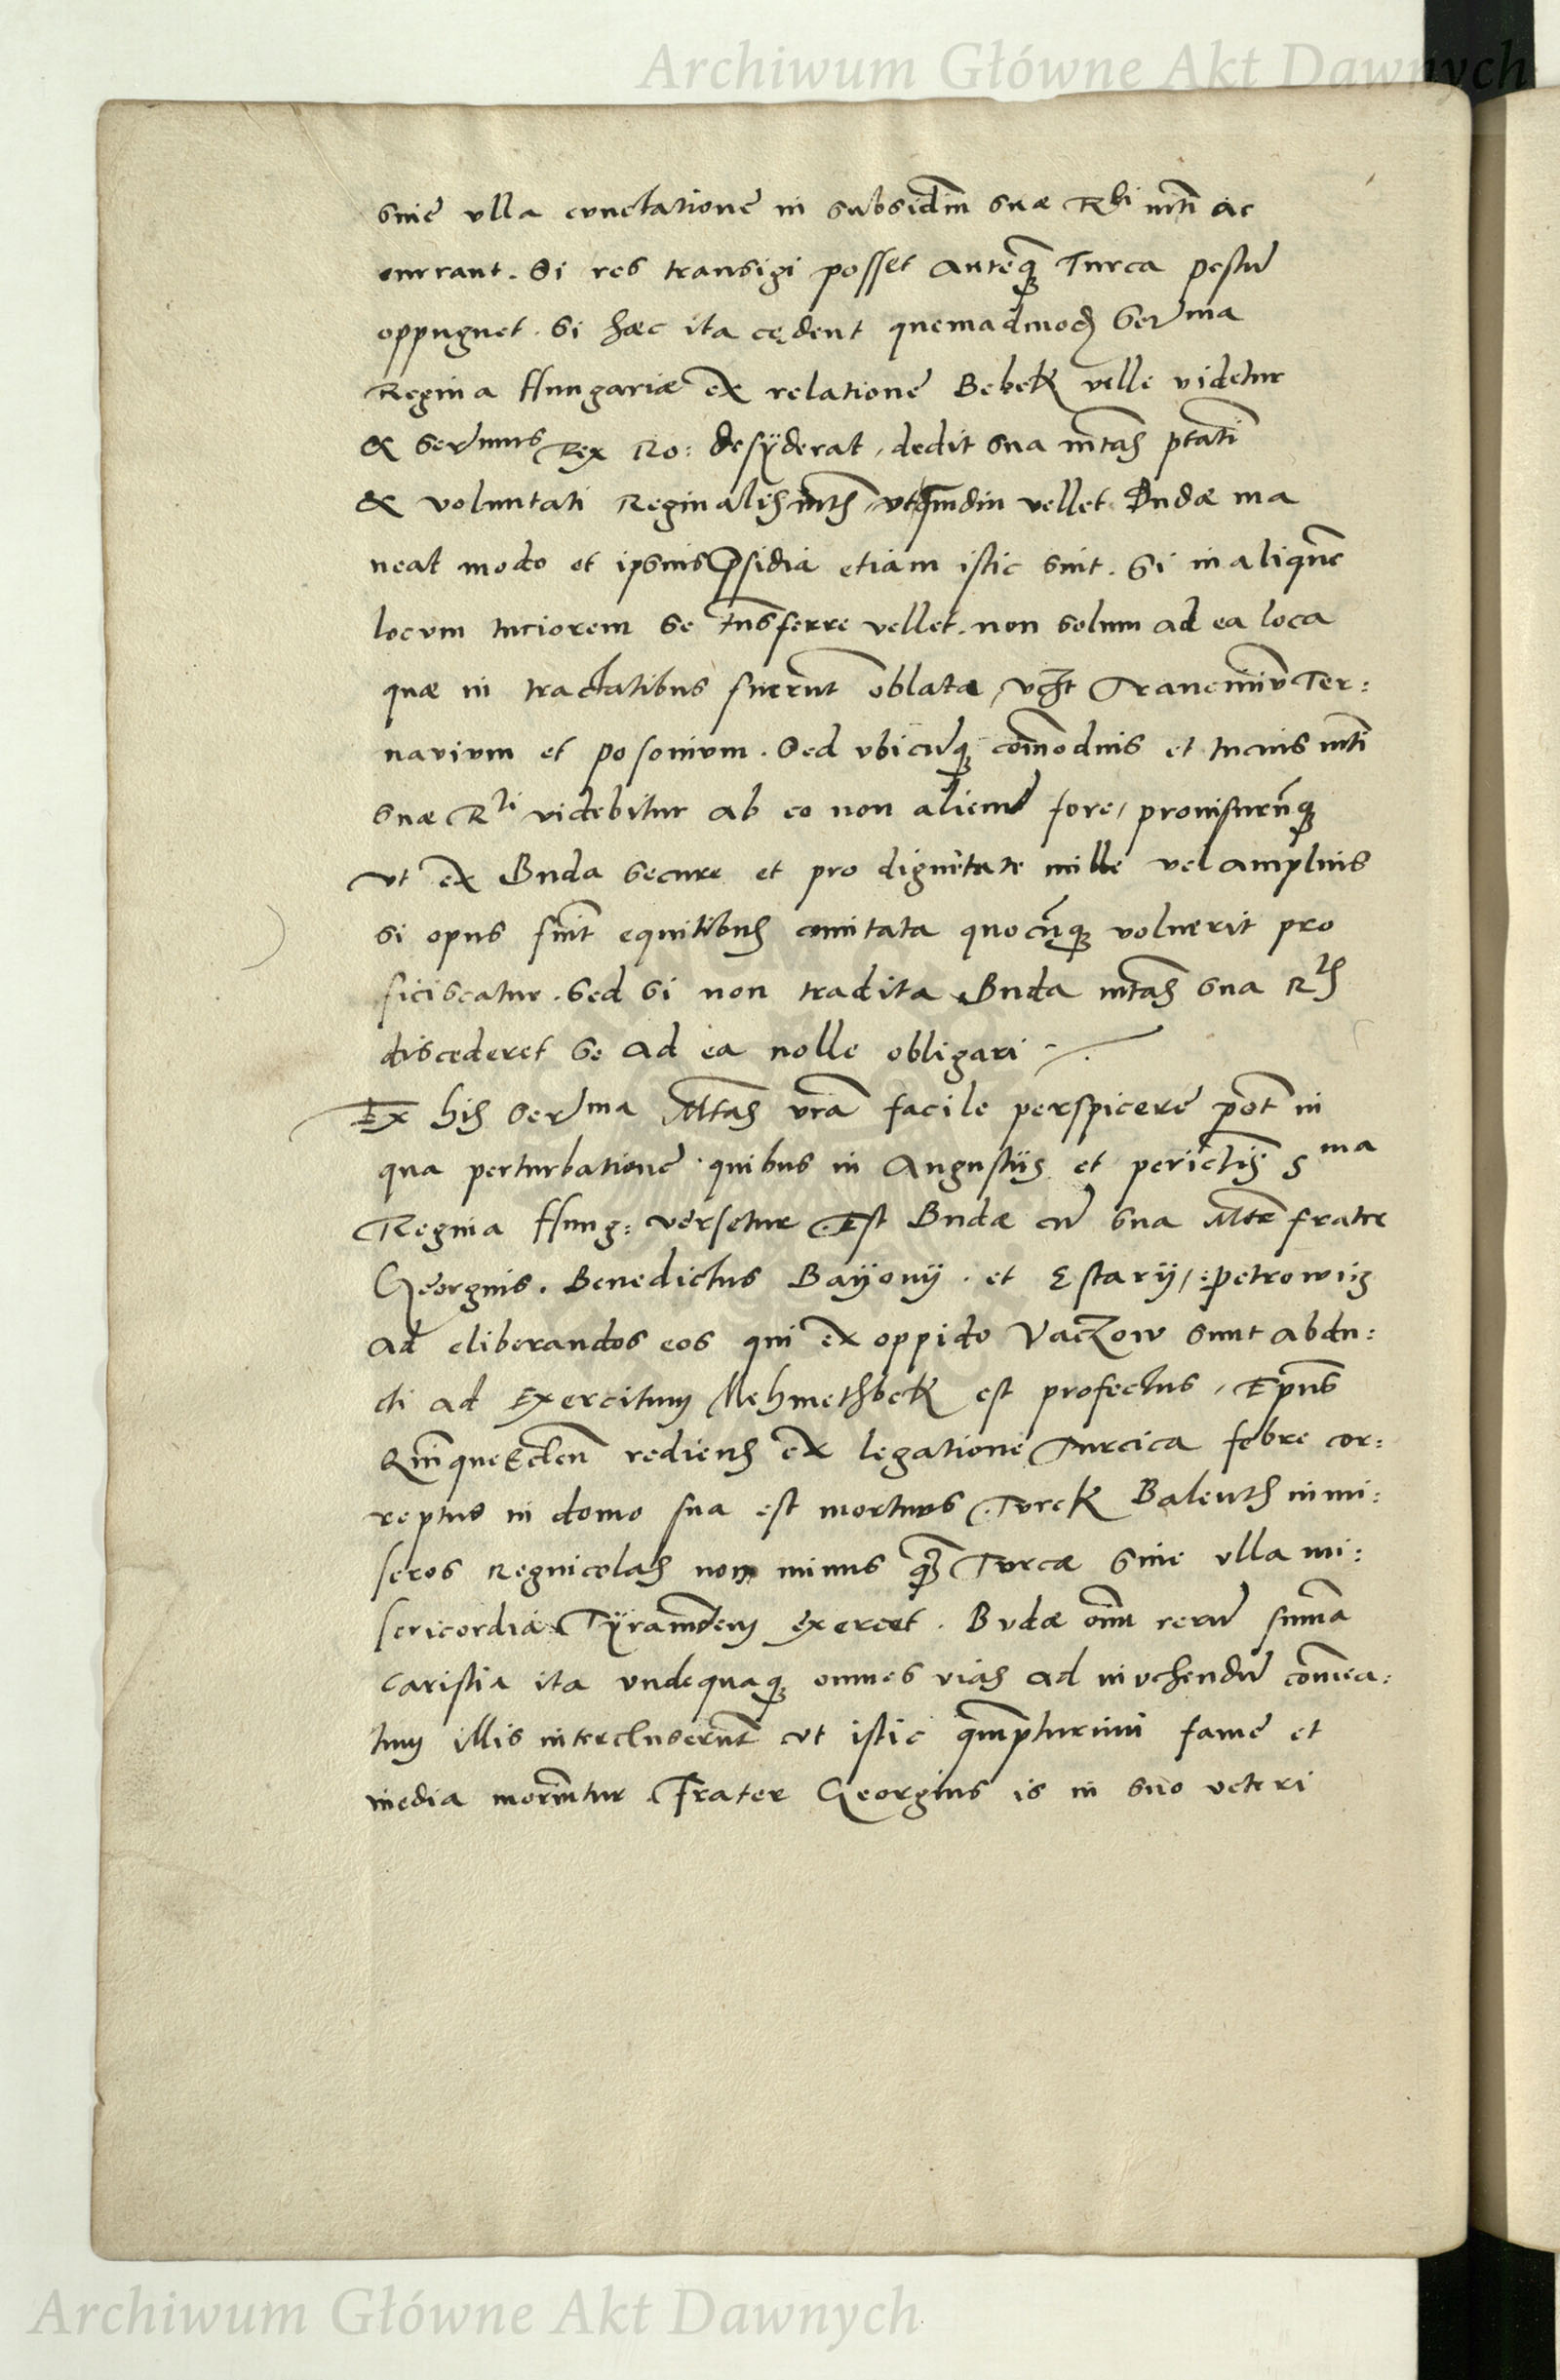 Archiwum Główne Akt Dawnych
sine vlla cunctatione in subsidiũ suæ Rli mti ac
currant. Si res transigi posset anteq̃ Turca pestũ
oppugnet. Si hæc ita cędent quemadmod Serma
Regina Hungariæ ex relatione Bebek velle videtur
& sermus Rex Ro: desÿderat, dedit sua mtas ptati
& voluntati Reginalis mtis, vt quãdiu vellet Budæ ma
neat modo et ipsius psidia etiam istic sint. Si in aliquẽ
locum tuciorem se trãsferre vellet, non solum ad ea loca
quæ in tractatibus fuerũt oblata, Ter:
navium et posonium. Sed vbicũq̃ com̃odius et tucius mti
suæ Rli videbitur ab eo non alienũ fore, prouisurũq̃
vt ex Buda secure et pro dignitate mille vel amplius
si opus fuit equitibus comitata quocũq̃ voluerit pro
ficiscatur. Sed si non tradita Buda mtas sua Rlis
discederet se ad ea nolle obligari
Ex his Serma Mtas vra facile perspicere pot in
qua perturbatione quibus in Angustijs et periclis Sma
Regina Hung: versetur Est Budæ cũ sua Mte frater
Georgius. Benedictus Bayony. et Estary, petrowiz
ad eliberandos eos qui ex oppido Vaczow sunt abdu:
cti ad Exercitum Mehmethbek est profectus, Epus
QuinqueEcclen rediens ex legatione Turcica febre cor:
reptus in domo sua est mortuus. Turck Balenth in mi:
seros Regnicolas non minus q̃ Turcæ sine vlla mi:
sericordia Tÿrannidem exercet. Budæ oim rerũ sum̃a
caristia ita vndequaq̃ omnes vias ad inuehendũ com̃ea:
tum illis intercluserũt vt istic fame et
inedia moriũtur. Frater Georgius is in suo veteri
Archiwum Główne Akt Dawnych